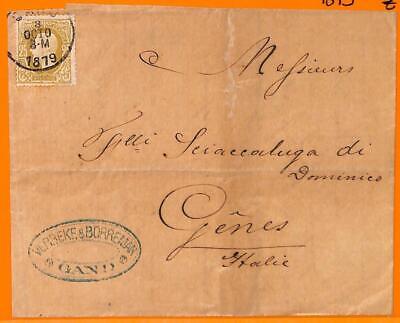 8
OCT 0
8-M
1879
25
Messieurs
Flli Sciaccaluga di
Dominico
Gênes
Italie
& BORREMAN
GAND